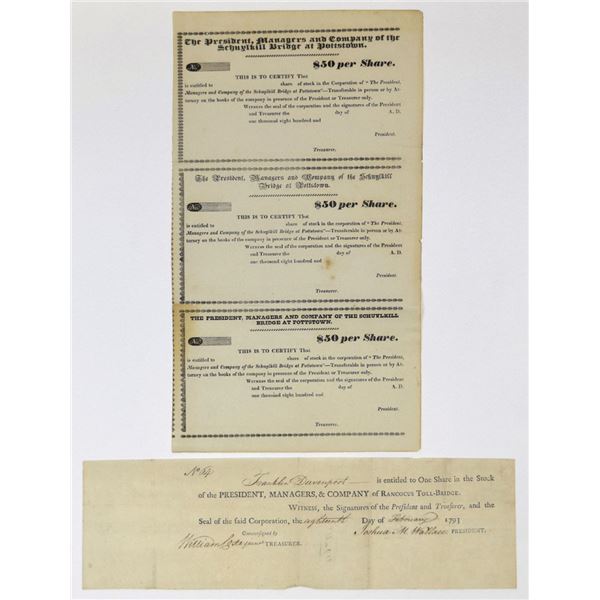 The President, Managers and Company of the
Schuylkill Bridge at Pottstown.
No.
$50 per Share.
THIS IS TO CERTIFY That
is entitled to share of stock in the Corporation of "The President,
Managers and Company of the Schuylkill Bridge at Pottstown"—Transferable in person or by At-
torney on the books of the company in presence of the President or Treasurer only.
WITNESS the seal of the corporation and the signatures of the President
and Treasurer the day of A. D.
one thousand eight hundred and
President.
Treasurer.
The President, Managers and Company of the Schuylkill
Bridge at Pottstown.
No.
$50 per Share.
THIS IS TO CERTIFY That
is entitled to share of stock in the corporation of "The President,
Managers and Company of the Schuylkill Bridge at Pottstown"—Transferable in person or by At-
torney on the books of the company in presence of the President or Treasurer only.
WITNESS the seal of the corporation and the signatures of the President
and Treasurer the day of A. D.
one thousand eight hundred and
President.
Treasurer.
THE PRESIDENT, MANAGERS AND COMPANY OF THE SCHUYLKILL
BRIDGE AT POTTSTOWN.
No.
$50 per Share.
THIS IS TO CERTIFY That
is entitled to share of stock in the corporation of "The President,
Managers and Company of the Schuylkill Bridge at Pottstown"—Transferable in person or by At-
torney on the books of the company in presence of the President or Treasurer only.
WITNESS the seal of the corporation and the signatures of the President
and Treasurer the day of A. D.
one thousand eight hundred and
President.
Treasurer.
No 64
Franklin Davenport is entitled to One Share in the Stock
of the PRESIDENT, MANAGERS, & COMPANY of RANCOCUS TOLL-BRIDGE.
WITNESS, the Signatures of the President and Treasurer, and the
Seal of the said Corporation, the eighteenth Day of February 1793
Countersigned by Joshua M. Wallace PRESIDENT.
William TREASURER.